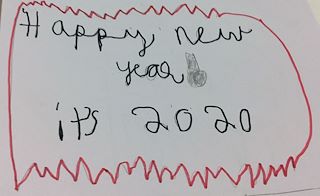 Happy new
year!
it's 2020